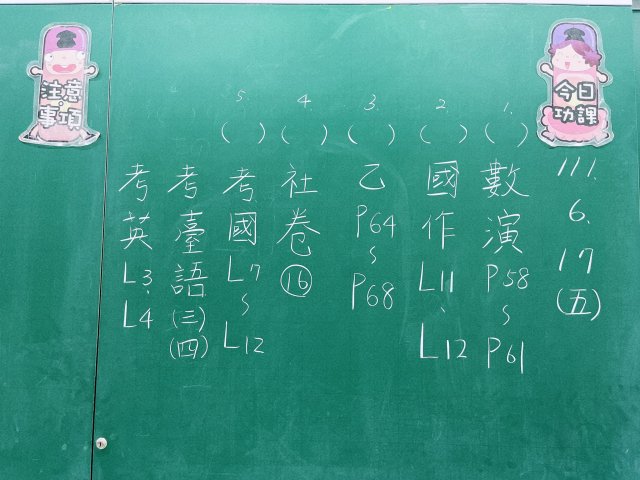 今日
功課
111.
6.
17
(五)
1. ( ) 數演 P58~P61
2. ( ) 國作 L11、L12
3. ( ) 乙 P64~P68
4. ( ) 社卷 ⑯
5. ( ) 考國 L7~L12
考臺語 (三)(四)
考英 L3、L4
注意
事項